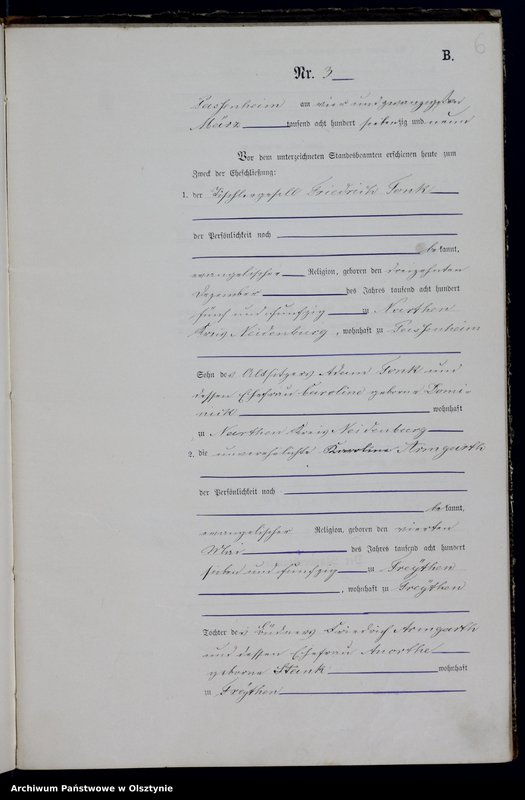 6
B.
Nr. 3
Passenheim am vier und zwanzigsten
März tausend acht hundert siebenzig und neun
Vor dem unterzeichneten Standesbeamten erschienen heute zum
Zweck der Eheschließung:
1. der Tischlergesell Friedrich Fonk
der Persönlichkeit nach
bekannt,
evangelischer Religion, geboren den dreizehnten
Dezember des Jahres tausend acht hundert
fünf und funfzig zu Narthen
Kreis Neidenburg, wohnhaft zu Passenheim
Sohn des Altsitzers Adam Fonk und
dessen Ehefrau Caroline geborne Domi-
nik wohnhaft
zu Narthen Kreis Neidenburg
2. die unverehelichte Karoline Armgarth
der Persönlichkeit nach
bekannt,
evangelischer Religion, geboren den vierten
Mai des Jahres tausend acht hundert
sieben und funfzig zu Freythen
, wohnhaft zu Freythen
Tochter des Büdners Friedrich Armgarth
und dessen Ehefrau Anorthe
geborne Stank wohnhaft
zu Freythen
Archiwum Państwowe w Olsztynie